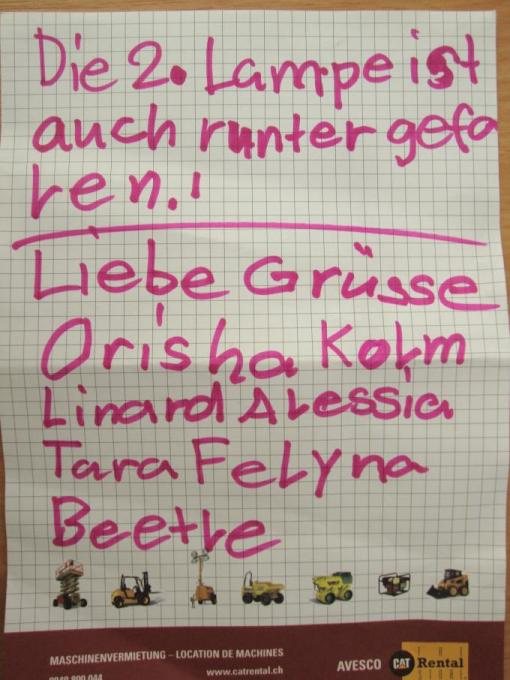 Die 2. Lampe ist
auch runter gefa
ren.!
Liebe Grüsse
Orisha Kolm
Linard Alessia
Tara Felyna
Beetle
MASCHINENVERMIETUNG – LOCATION DE MACHINES
0848 800 044
www.catrental.ch
AVESCO CAT Rental